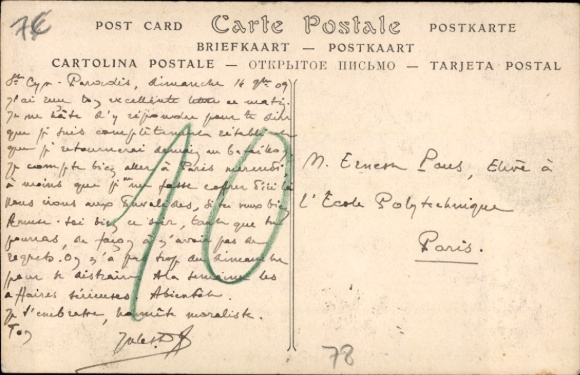 7€
POST CARD Carte Postale POSTKARTE
BRIEFKAART — POSTKAART
CARTOLINA POSTALE — ОТКРЫТОЕ ПИСЬМО — TARJETA POSTAL
St Cyr - Paradis, dimanche 14 9bre 09
J'ai reçu ton excellente lettre ce matin.
Je me hâte d'y répondre pour te dire
que je suis complètement rétabli et
que je retournerai demain au bataillon.
Je compte bien aller à Paris mercredi
à moins que je me fasse coffrer d'ici là
Nous irons aux Invalides, si tu veux bien
Amuse-toi bien ce soir, tant que tu
pourras, de façon à n'avoir pas de
regrets. On n'a pas trop du dimanche
pour se distraire. A la semaine les
affaires sérieuses. Abientôt.
Je t'embrasse, honnête moraliste.
Ton
Jules
M. Ernest Pons, Elève à
l'École Polytechnique
Paris.
10
78